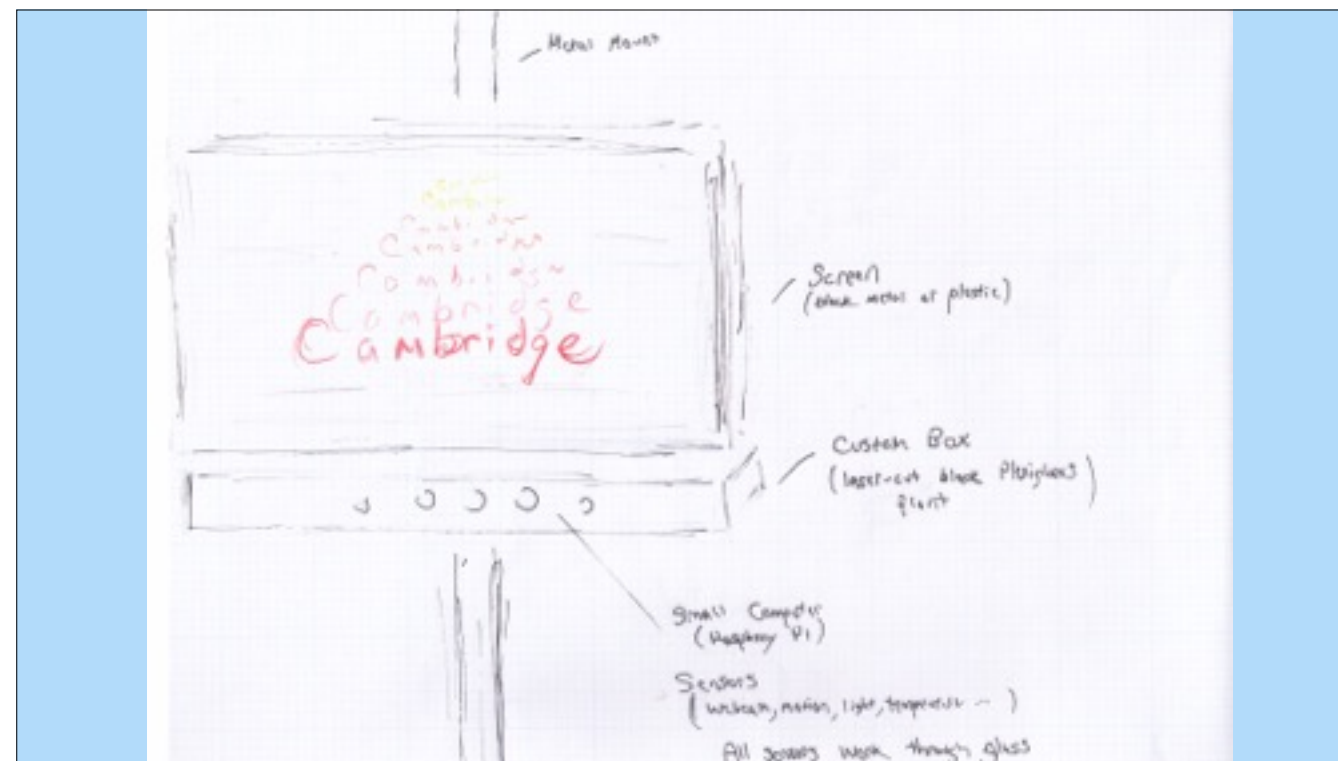 Metal Mount
Cambridge
Cambridge
Cambridge
Cambridge
Cambridge
Screen
(black metal or plastic)
Custom Box
(laser-cut black Plexiglass)
front
Small Computer
(Raspberry Pi)
Sensors
(webcam, motion, light, temperature ...)
All sensors work through glass